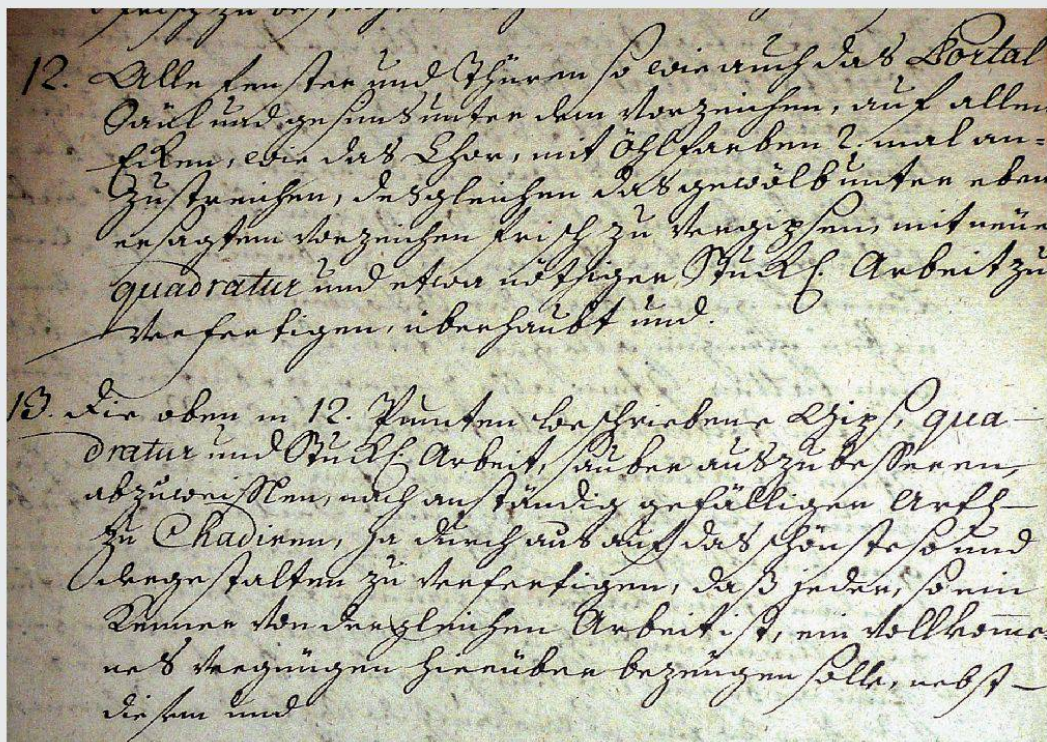 12. Alle fenster und Thüren so wie auch das Portal
Säul und gesims unter dem Vorzeichen, auf allen
Ecken, wie das Chor, mit Öhlfarben 2. mal an=
zustreichen, desgleichen das gewölb unter eben
ersagtem Vorzeichen frisch zu Vergipsen, mit neüe
quadratur und etwa nötsiger Stuckh. Arbeit zu
Verfertigen, überhaubt und.
13. Die oben in 12. Puncten beschriebene Gips, qua-
dratur und Stuckh. Arbeit, sauber auszubesseren,
abzuweissen, nach anständig gefälligen
zu Chadiren, ja durchaus auf das schönste so und
dergestalten zu Verfertigen, daß jeder, so ein
Kenner Von dergleichen Arbeit ist, ein Vollkom̄e=
nes Vergnügen hierüber bezeugen solle, nebst
diesem und